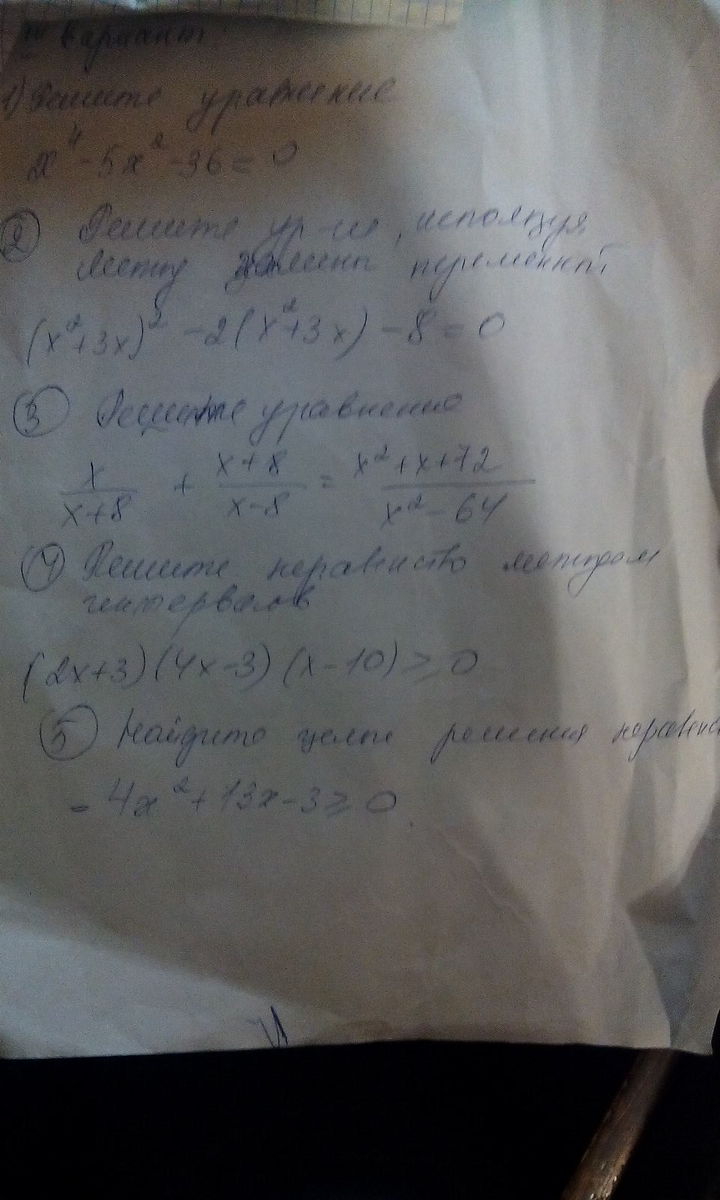 вариант
1) Решите уравнение
x⁴-5x²-36=0
② Решите ур-ие, используя
метод замены переменной
(x²+3x)²-2(x²+3x)-8=0
③ Решите уравнение
x/(x+8) + (x+8)/(x-8) = (x²+x+72)/(x²-64)
④ Решите неравенство методом
интервалов
(2x+3)(4x-3)(x-10)≥0
⑤ Найдите целые решения неравенс
-4x²+13x-3≥0